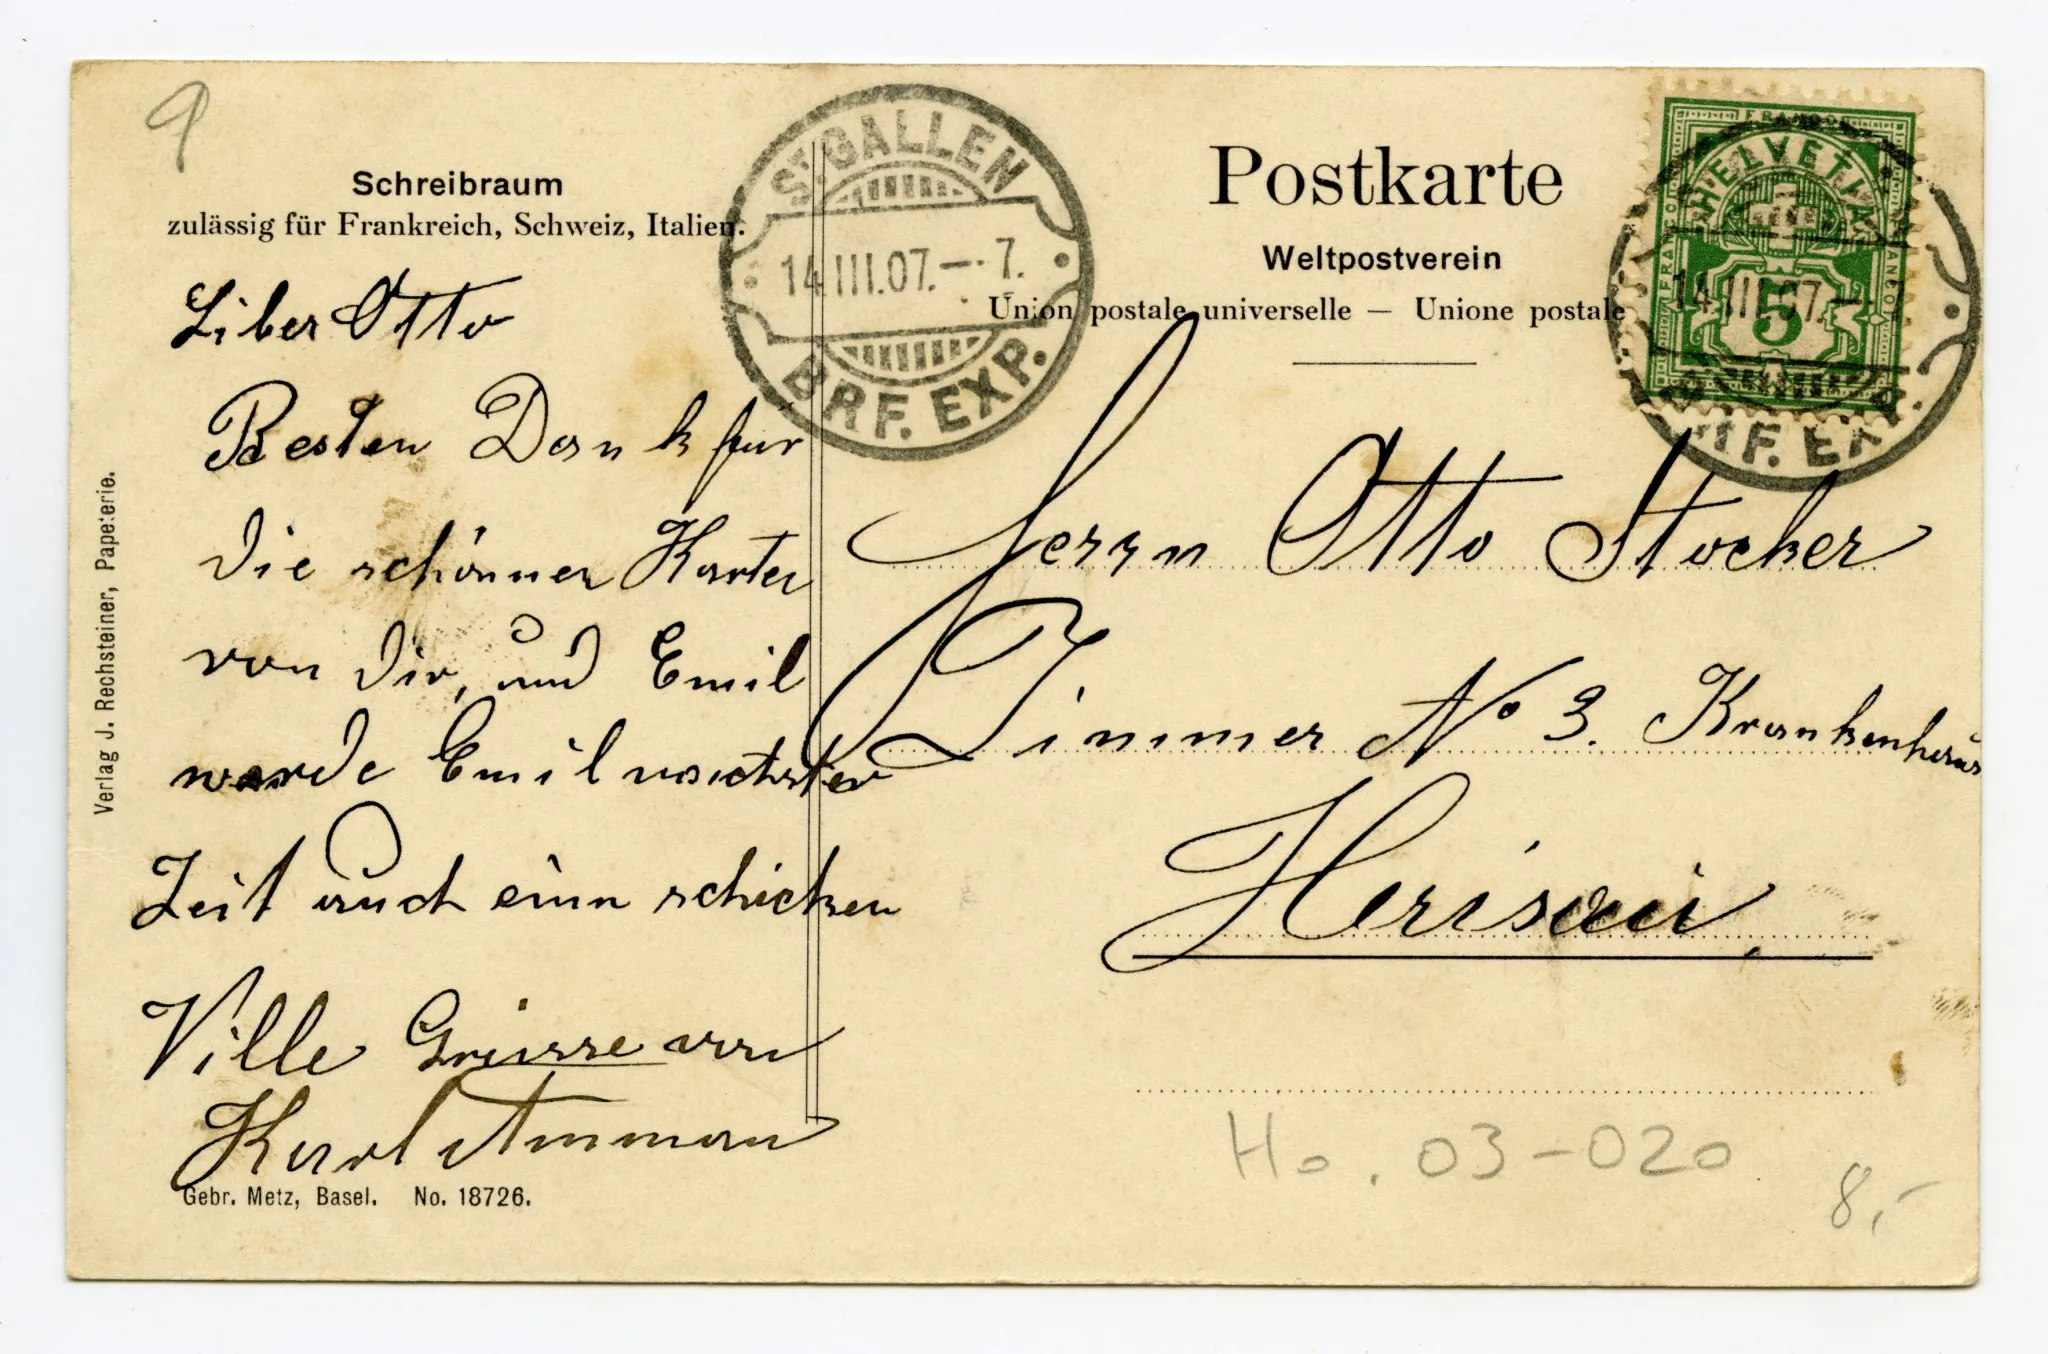 9
Schreibraum
zulässig für Frankreich, Schweiz, Italien.
Liber Otto
Besten Dank für
die schönner Karter
von dir, und Emil
werde Emil nächster
Zeit auch einn schicken
Ville Grüsse von
Karl Amman
Gebr. Metz, Basel. No. 18726.
Verlag J. Rechsteiner, Papeterie.
ST. GALLEN
14.III.07.—·7.
BRF. EXP.
Postkarte
Weltpostverein
Union postale universelle — Unione postale
FRANCO
HELVETIA
FRANCO
FRANCO
5
14.III.07.—
BRF. EXP.
Herrn Otto Stocker
Zimmer No 3. Krankenhaus
Herisau.
Ho. 03-020
8,-